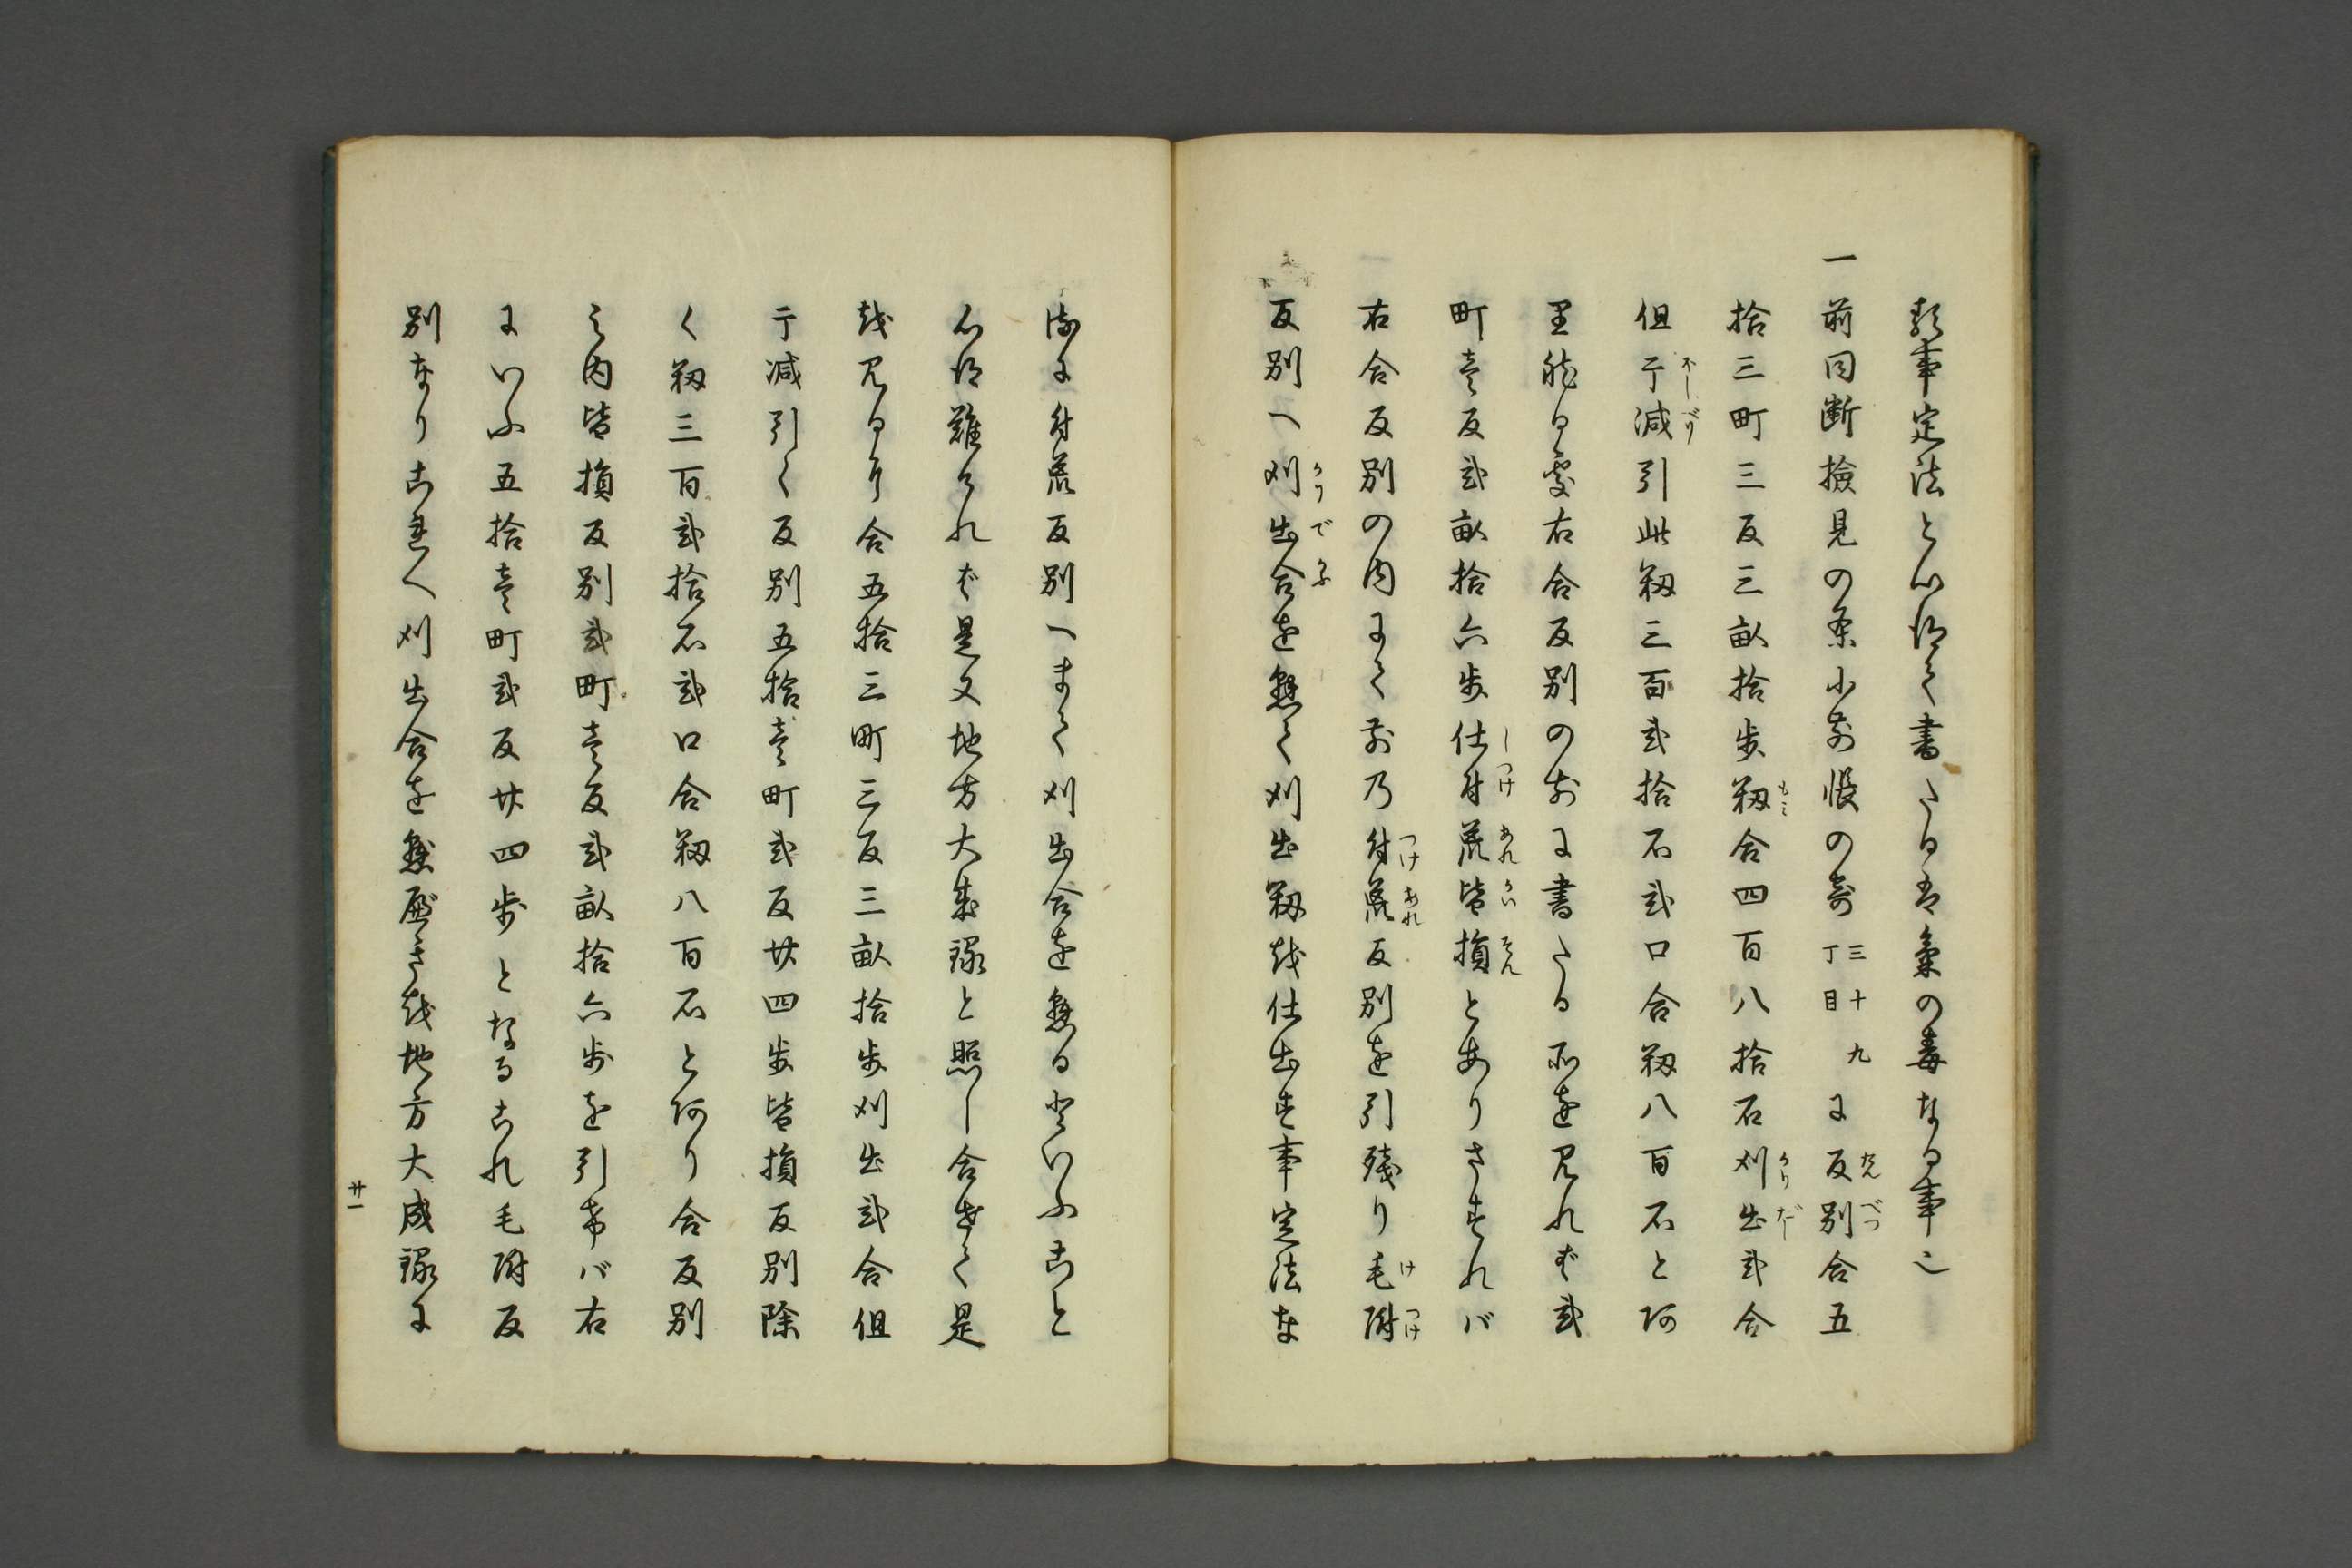 類事定法と心得て書たるは氣の毒なる事也
一前同断撿見の条小前帳の寄三十九丁目に反別合五
拾三町三反三畝拾歩籾合四百八拾石刈出弐合
但干減引此籾三百弐拾石弐口合籾八百石と阿
里然る處右合反別の前に書たる所を見れば弐
町壱反弐畝拾六歩仕付荒皆損とありさすれバ
右合反別の内にて前乃付荒反別を引残り毛附
反別へ刈出合を懸て刈出籾越仕出す事定法な
に付荒反別へまて刈出合を懸る といふこと
心得難けれど是又地方大成録と照し合せて是
越見るに合五拾三町三反三畝拾歩刈出弐合但
干減引く反別五拾壱町弐反廿四歩皆損反別除
く籾三百弐拾石弐口合籾八百石と阿り合反別
之内皆損反別弐町壱反弐畝拾六歩を引希バ右
にいふ五拾壱町弐反廿四歩となるこれ毛附反
別なりこれへ刈出合を懸べき越地方大成録に
廿一